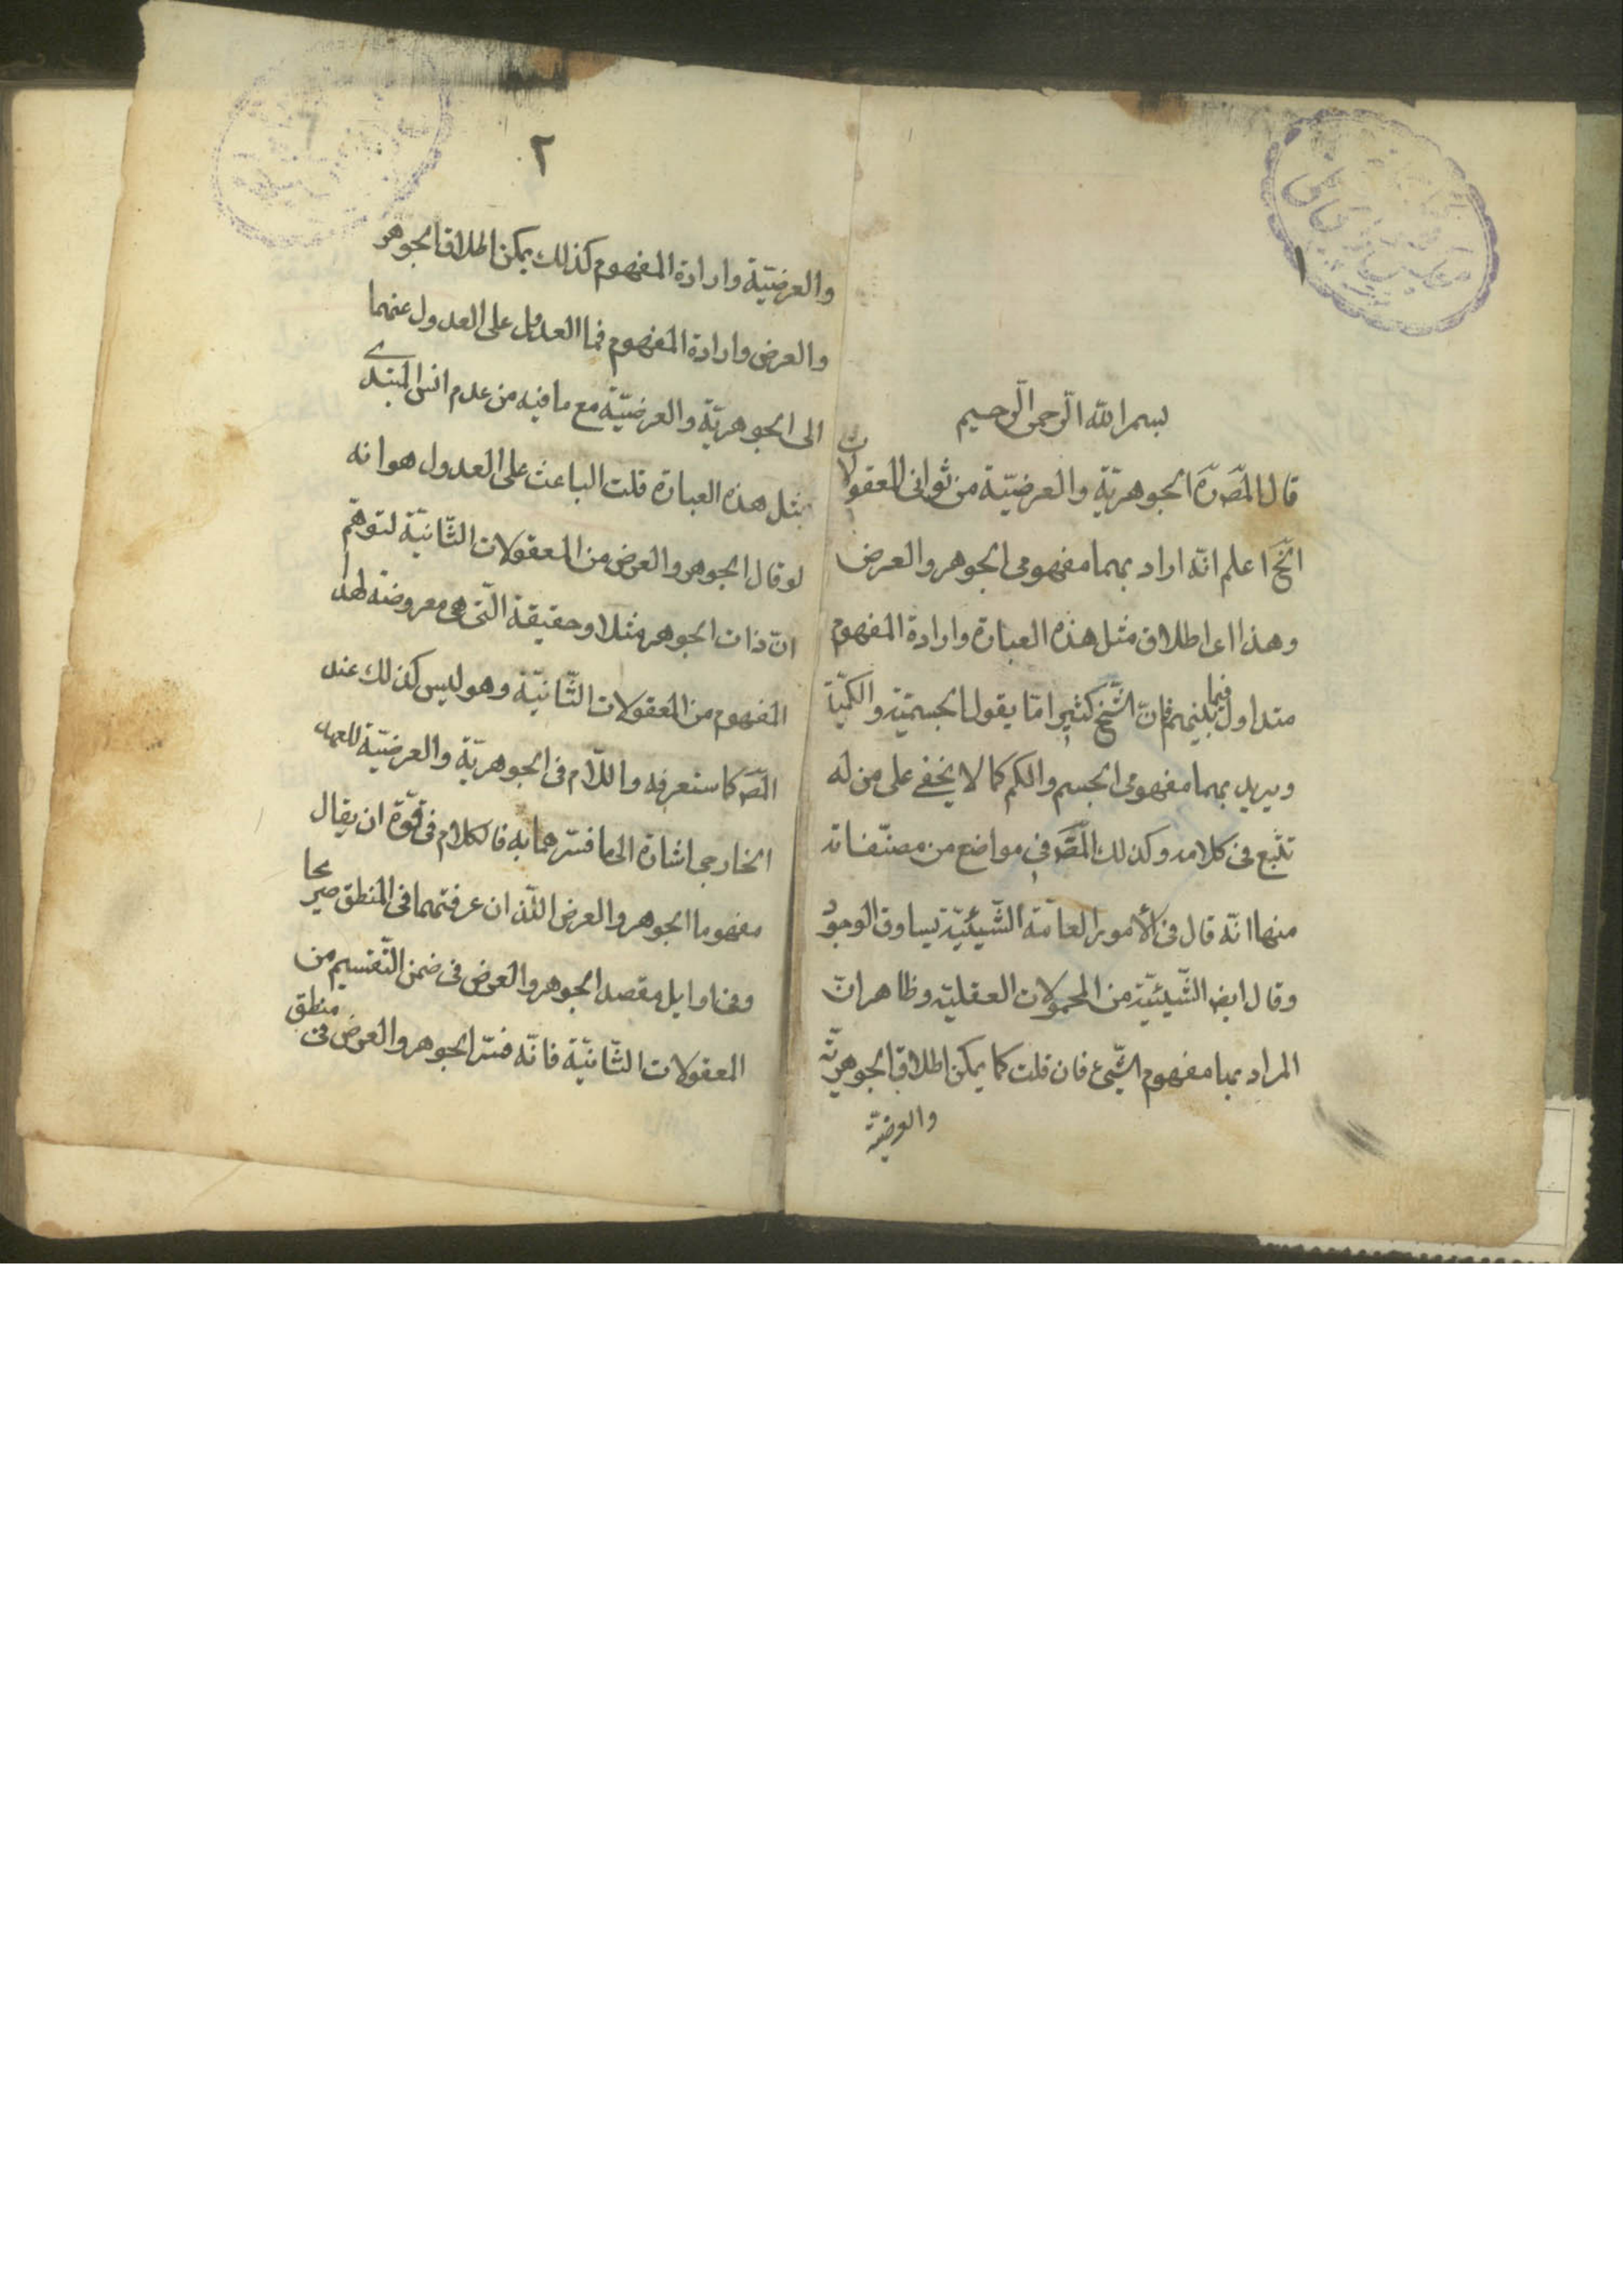 بسم الله الرحمن الرحيم
قال المصَ رَه الجوهريّة والعرضيّة من ثواني المعقولات
الخ اعلم انّه اراد بهما مفهومي الجوهر والعرض
وهذا اى اطلاق مثل هذه العبارة وارادة المفهوم
متداول فيما بينهم فانّ الشّيخ كثيرا مّا يقول الجسميّة والكميّة
ويريد بهما مفهومي الجسم والكم كما لا يخفى على من له
تتّبع في كلامه وكذلك المصَ في مواضع من مصنّفاته
منها انّه قال في الأمور العامّة الشّيئيّة تساوق الوجود
وقال ايض الشّيئيّة من المحمولات العقليّة وظاهر انّ
المراد بها مفهوم الشّيء فان قلت كما يمكن اطلاق الجوهريّة
والعرضيّة
٢
والعرضيّة وارادة المفهوم كذلك يمكن اطلاق الجوهر
والعرض وارادة المفهوم فما على العدول عنهما
الى الجوهريّة والعرضيّة مع ما فيه من عدم انس المبتدى
بمثل هذه العبارة قلت الباعث على العدول هو انه
لو قال الجوهر والعرض من المعقولات الثّانيّة لتوهّم
انّ ذات الجوهر مثلا وحقيقة الّتي هي معروضة لهذا
المفهوم من المعقولات الثّانيّة وهو ليس كذلك عند
المصَ كما ستعرفه واللّام في الجوهريّة والعرضيّة للعهد
الخارجي اشارة الى ما فسّرهما به فالكلام في قوّة ان يقال
مفهوما الجوهر والعرض اللّذان عرفتهما في المنطق صريحا
وفي اوايل مقصد الجوهر والعرض في ضمن التّقسيم من
المعقولات الثّانيّة فانّه فسّر الجوهر والعرض في منطق